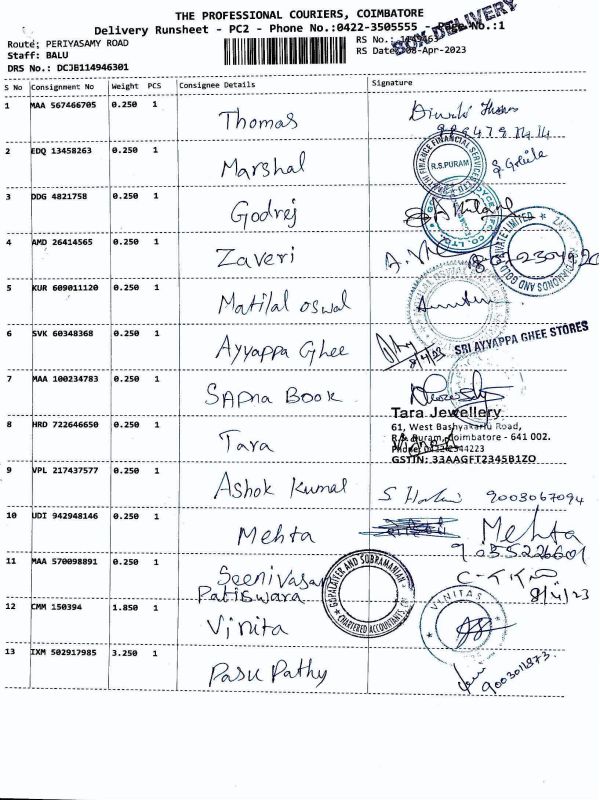 THE PROFESSIONAL COURIERS, COIMBATORE
Delivery Runsheet - PC2 - Phone No.:0422-3505555 - Page No.:1
BOX DELIVERY
Route: PERIYASAMY ROAD
RS No.:
Staff: BALU
RS Date: 08-Apr-2023
DRS No.: DCJB114946301
S No Consignment No Weight PCS Consignee Details Signature
1 MAA 567466705 0.250 1 Thomas
2 EDQ 13458263 0.250 1 Marshal
R.S.PURAM
3 DDG 4821758 0.250 1 Godrej
4 AMD 26414565 0.250 1 Zaveri
5 KUR 609011120 0.250 1 Matilal oswal
6 SVK 60348368 0.250 1 Ayyappa Ghee
8/4/23 SRI AYYAPPA GHEE STORES
7 MAA 100234783 0.250 1 SAPna Book
Tara Jewellery
8 HRD 722646650 0.250 1 Tara
61, West Bashyakarlu Road,
R.S.Puram, Coimbatore - 641 002.
GSTIN: 33AAGFT2345B1ZO
9 VPL 217437577 0.250 1 Ashok Kumal
9003067094
10 UDI 942948146 0.250 1 Mehta Mehta
11 MAA 570098891 0.250 1 Seenivasan
Patiswara
GOPALAIYER AND SUBRAMANIAN
CHARTERED ACCOUNTANTS
8/4/23
12 CMM 150394 1.850 1 Vinita
VINITAS
13 IXM 502917985 3.250 1 Pasu Pathy